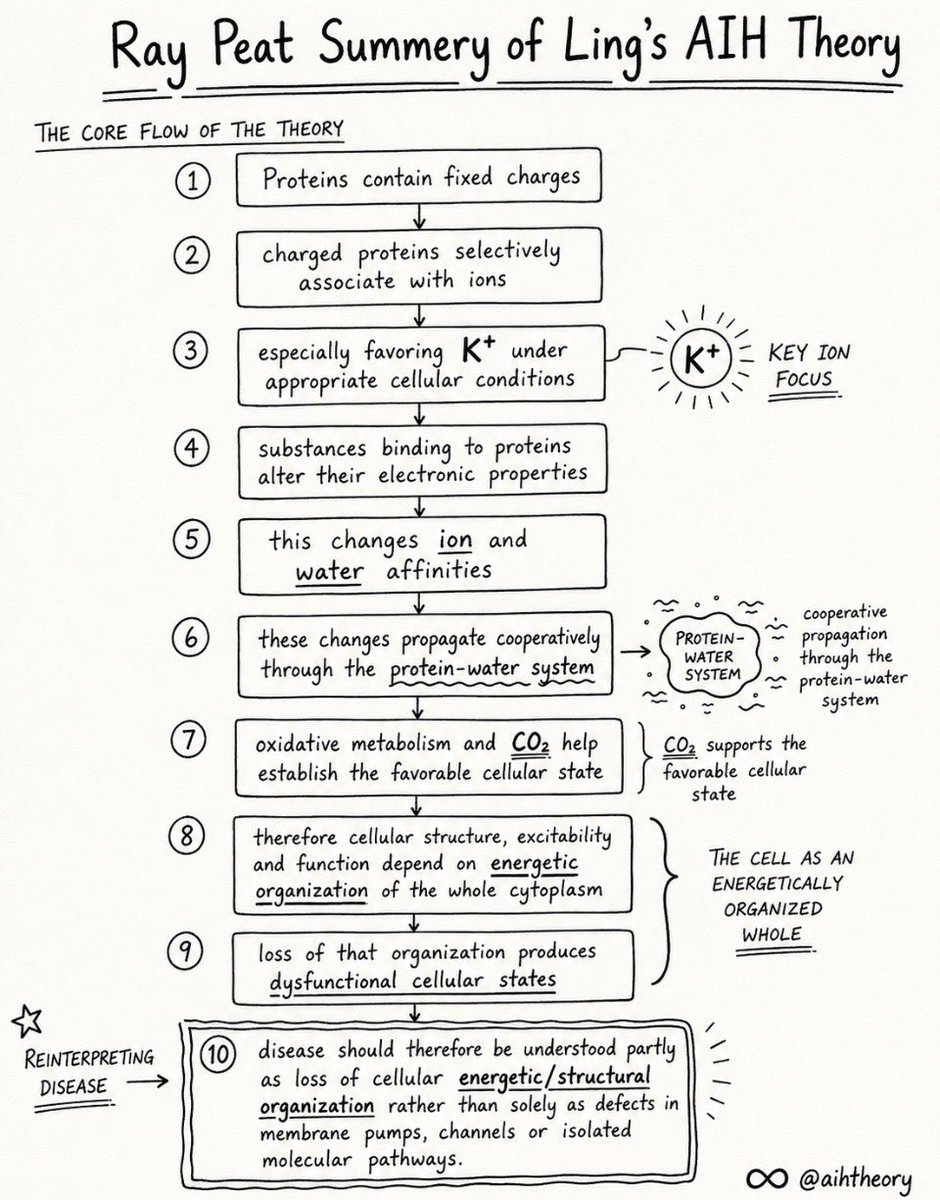 Ray Peat Summery of Ling's AIH Theory
THE CORE FLOW OF THE THEORY
1
Proteins contain fixed charges
2
charged proteins selectively
associate with ions
3
especially favoring K⁺ under
appropriate cellular conditions
K⁺
KEY ION
FOCUS
4
substances binding to proteins
alter their electronic properties
5
this changes ion and
water affinities
6
these changes propagate cooperatively
through the protein-water system
PROTEIN-
WATER
SYSTEM
cooperative
propagation
through the
protein-water
system
7
oxidative metabolism and CO₂ help
establish the favorable cellular state
CO₂ supports the
favorable cellular
state
8
therefore cellular structure, excitability
and function depend on energetic
organization of the whole cytoplasm
9
loss of that organization produces
dysfunctional cellular states
THE CELL AS AN
ENERGETICALLY
ORGANIZED
WHOLE
REINTERPRETING
DISEASE
10
disease should therefore be understood partly
as loss of cellular energetic/structural
organization rather than solely as defects in
membrane pumps, channels or isolated
molecular pathways.
∞ @aihtheory